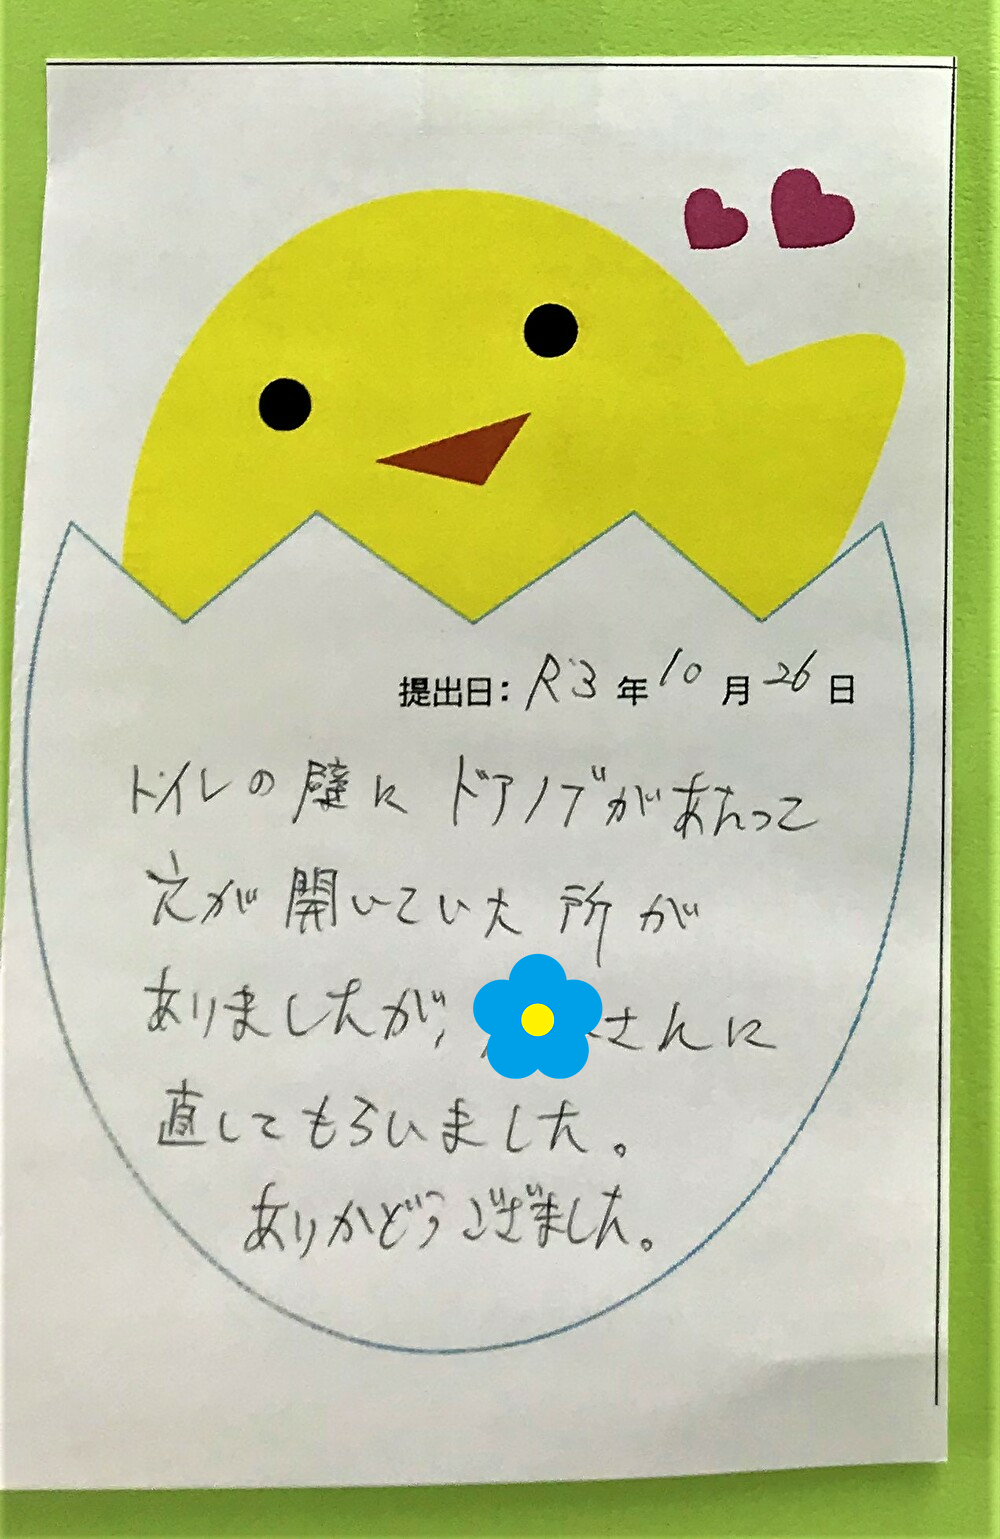 提出日: R3年10月26日
トイレの壁に ドアノブがあたって
穴が 開いていた 所が
ありましたが、さんに
直してもらいました。
ありがどうございました。